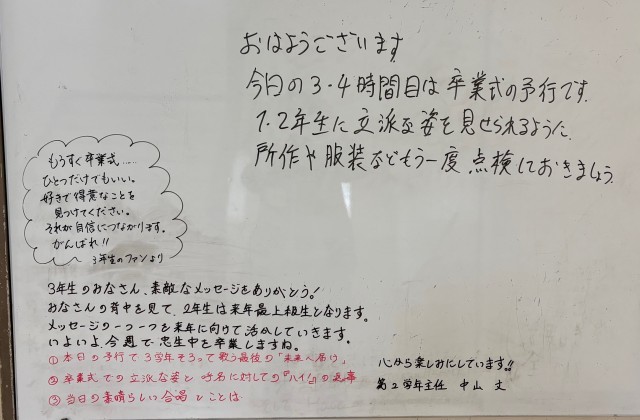 おはようございます
今日の3・4時間目は卒業式の予行です。
1.2年生に立派な姿を見せられるように、
所作や服装などもう一度点検しておきましょう。
もうすぐ卒業式……
ひとつだけでもいい。
好きで得意なことを
見つけてください。
それが自信につながります。
がんばれ!!
3年生のファンより
3年生のみなさん、素敵なメッセージをありがとう!
みなさんの背中を見て、2年生は来年最上級生となります。
メッセージの一つ一つを来年に向けて活かしていきます。
いよいよ、今週で忠生中を卒業しますね。
①本日の予行で3学年そろって歌う最後の「未来へ届け」
②卒業式での立派な姿と呼名に対しての『ハイ』の返事
③当日の素晴らしい合唱とことば
心から楽しみにしています!!
第2学年主任 中山 丈